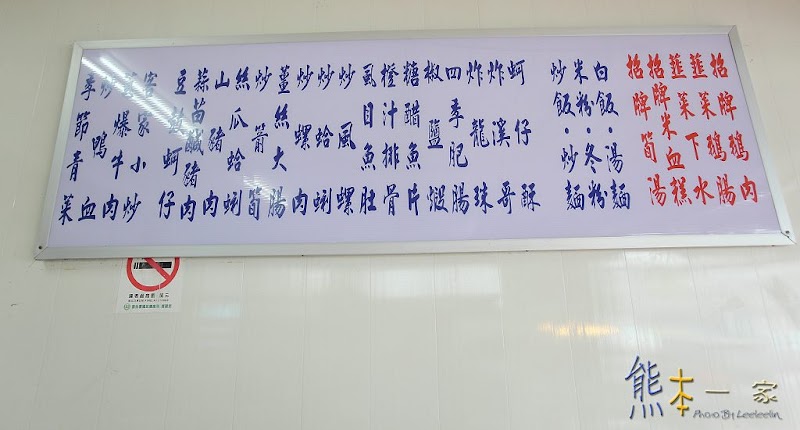 招牌鵝肉
韮菜鵝腸
韮菜下水
招牌米血糕
招牌筍湯
白飯·湯麵
米粉·冬粉
炒飯·炒麵
蚵仔酥
炸溪哥
炸龍珠
四季肥腸
椒鹽蝦
糖醋魚片
橙汁排骨
虱目魚肚
炒風螺
炒蛤蜊
炒螺肉
薑絲大腸
炒箭筍
絲瓜蛤蜊
山豬肉
蒜苗鹹豬肉
豆豉蚵仔
客家小炒
蔥爆牛肉
炒鴨血
季節青菜
熊本一家
Photo By Leeleelin